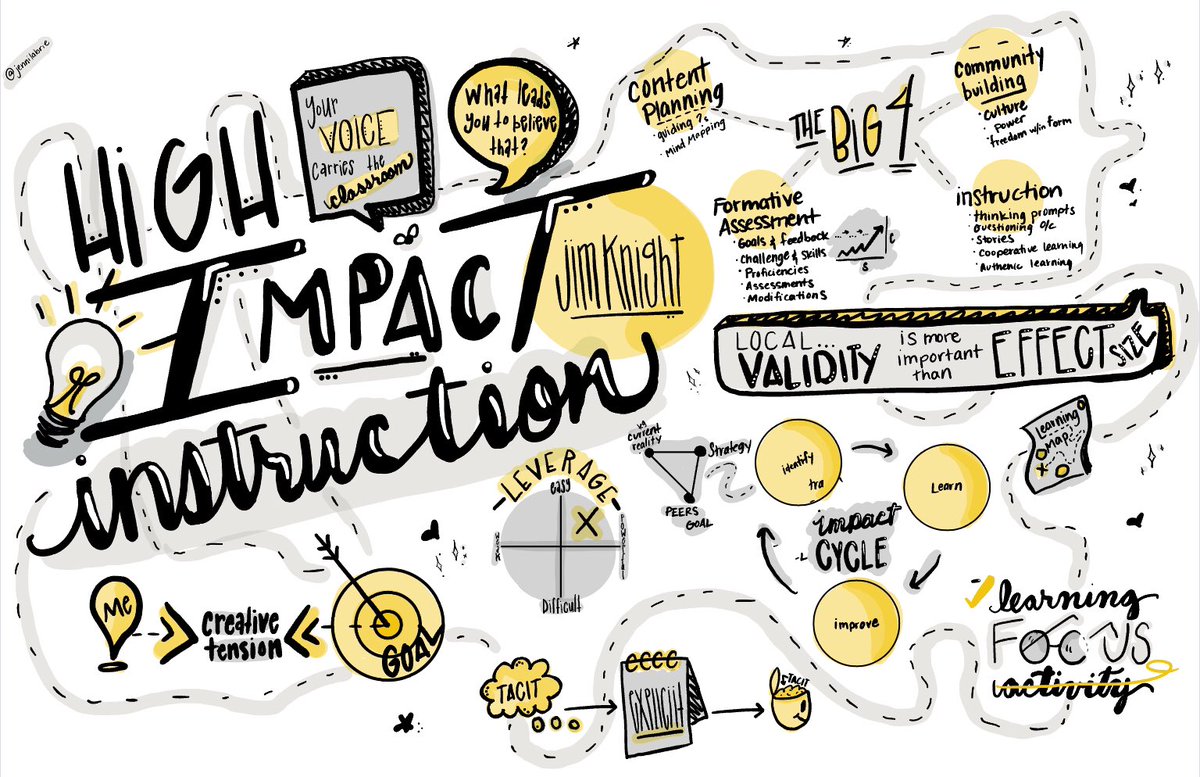 @jennilabrie
HIGH
IMPACT
instruction
Jim Knight
Your
VOICE
Carries the
classroom
What leads
you to believe
that?
content
Planning
• guiding ?s
• Mind Mapping
THE BIG 4
community
building
• culture
• power
• freedom w/in form
Formative
Assessment
• Goals & feedback
• Challenge & Skills
• Proficiencies
• Assessments
• Modifications
C
S
instruction
• thinking prompts
• Questioning O/C
• Stories
• Cooperative learning
• Authenic learning
LOCAL...
VALIDITY
is more
important
than
EFFECT
SIZE
vs
current
reality
Strategy
PEERS
GOAL
LEVERAGE
easy
X
Difficult
identify
tra
Learn
improve
impact
CYCLE
Learning
Map
X
Me
creative
tension
GOAL
TACIT
EXPLICIT
TACIT
learning
FOCUS
activity